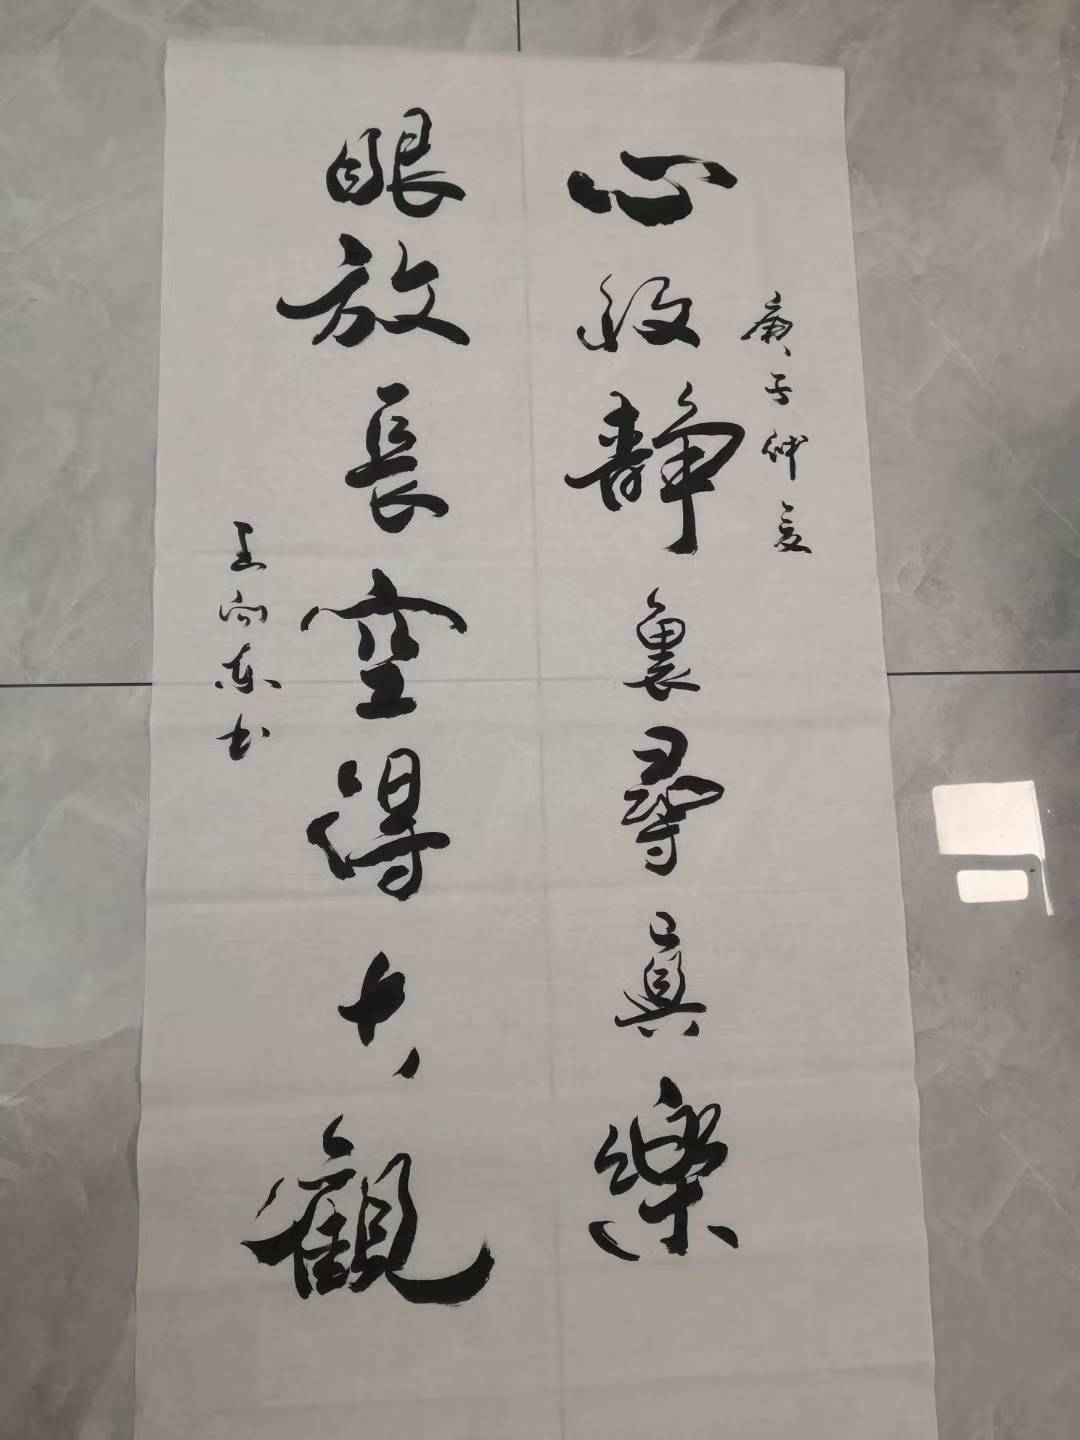 庚子仲夏
心收静裏尋真樂
眼放長空得大觀
王向东书